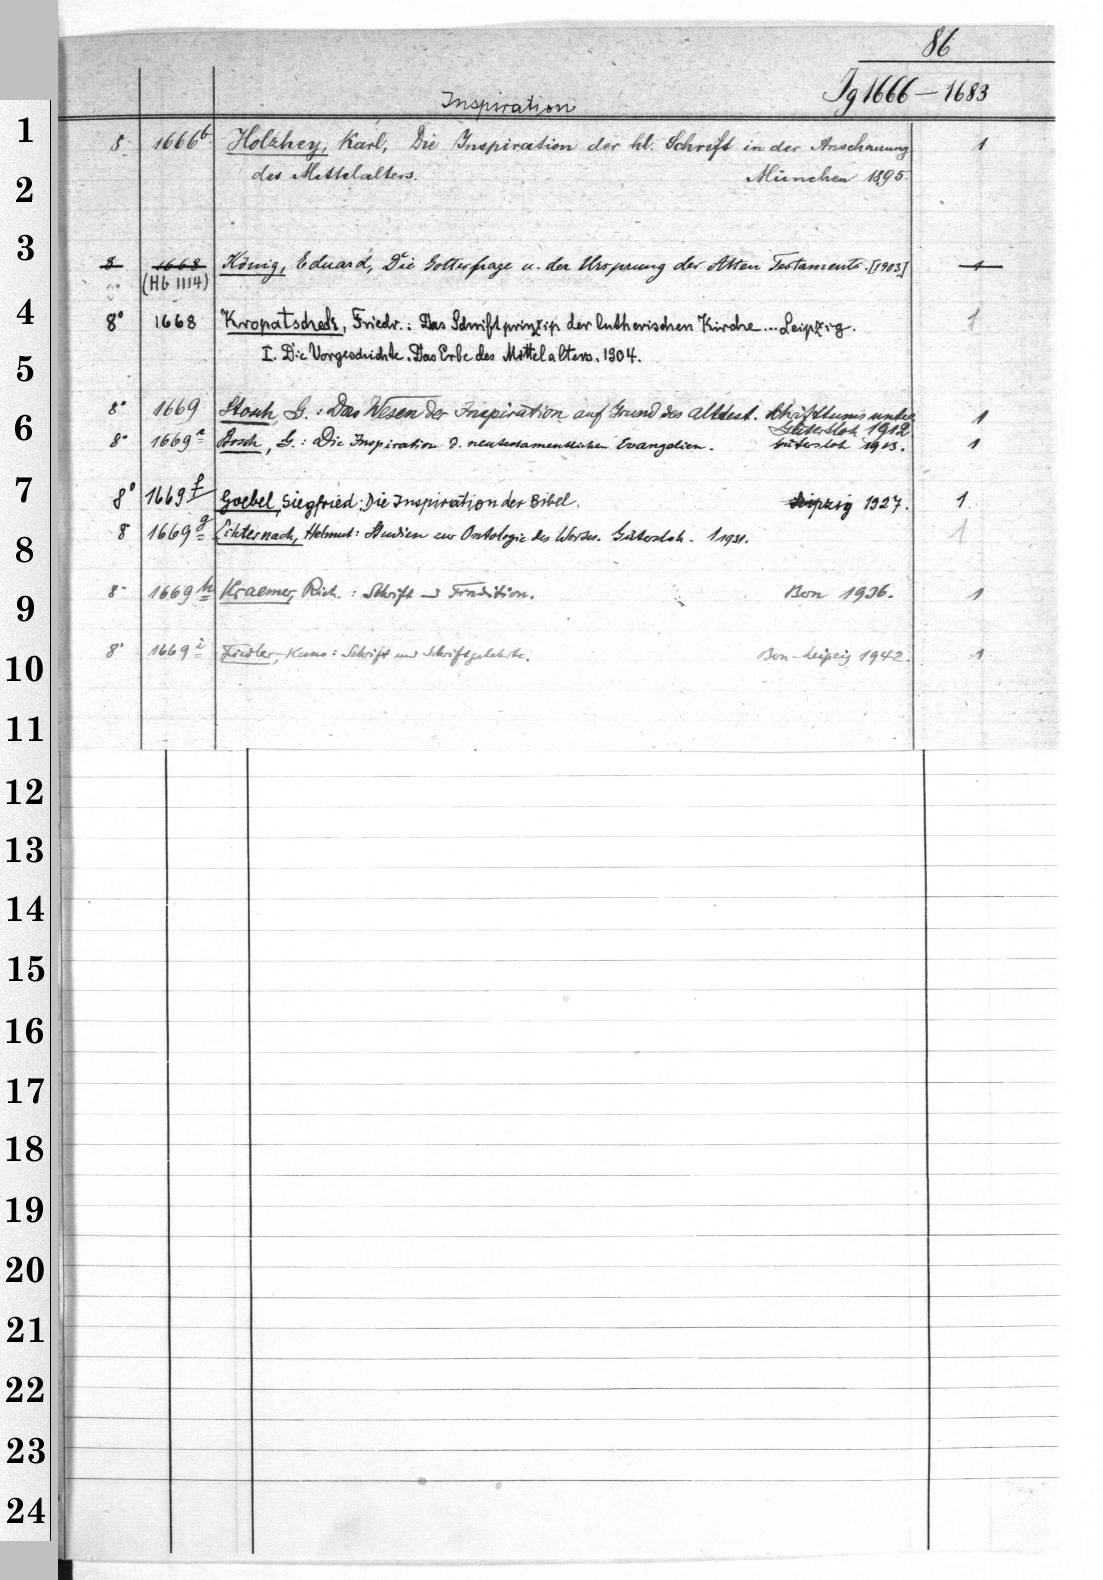 86
Jg 1666 — 1683
Inspiration
1
8 1666b Holzhey, Karl, Die Inspiration der hl. Schrift in der Anschauung 1
2
des Mittelalters. München 1895.
3
8 1668 König, Eduard, Die Gottesfrage u. der Ursprung des Alten Testaments. [1903] 1
(Hb 1114)
4
8° 1668 Kropatscheck, Friedr.: Das Schriftprinzip der lutherischen Kirche... Leipzig. 1
I. Die Vorgeschichte. Das Erbe des Mittelalters. 1904.
5
8° 1669 Stosch, G.: Das Wesen der Inspiration auf Grund des alttest. Schrifttums unter
Gütersloh 1912 1
6
8° 1669a Stosch, G.: Die Inspiration d. neutestamentlichen Evangelien. Gütersloh 1913. 1
7
8° 1669f Goebel, Siegfried: Die Inspiration der Bibel. Leipzig 1927. 1.
8
8 1669g Echternach, Helmut: Studien zur Ontologie des Wortes. Gütersloh. 1 1931. 1
9
8° 1669h Kraemer, Rich.: Schrift u Tradition. Bon 1936. 1
10
8° 1669i Fiedler, Kuno: Schrift und Schriftgelehrte. Bon-Leipzig 1942. 1
11
12
13
14
15
16
17
18
19
20
21
22
23
24